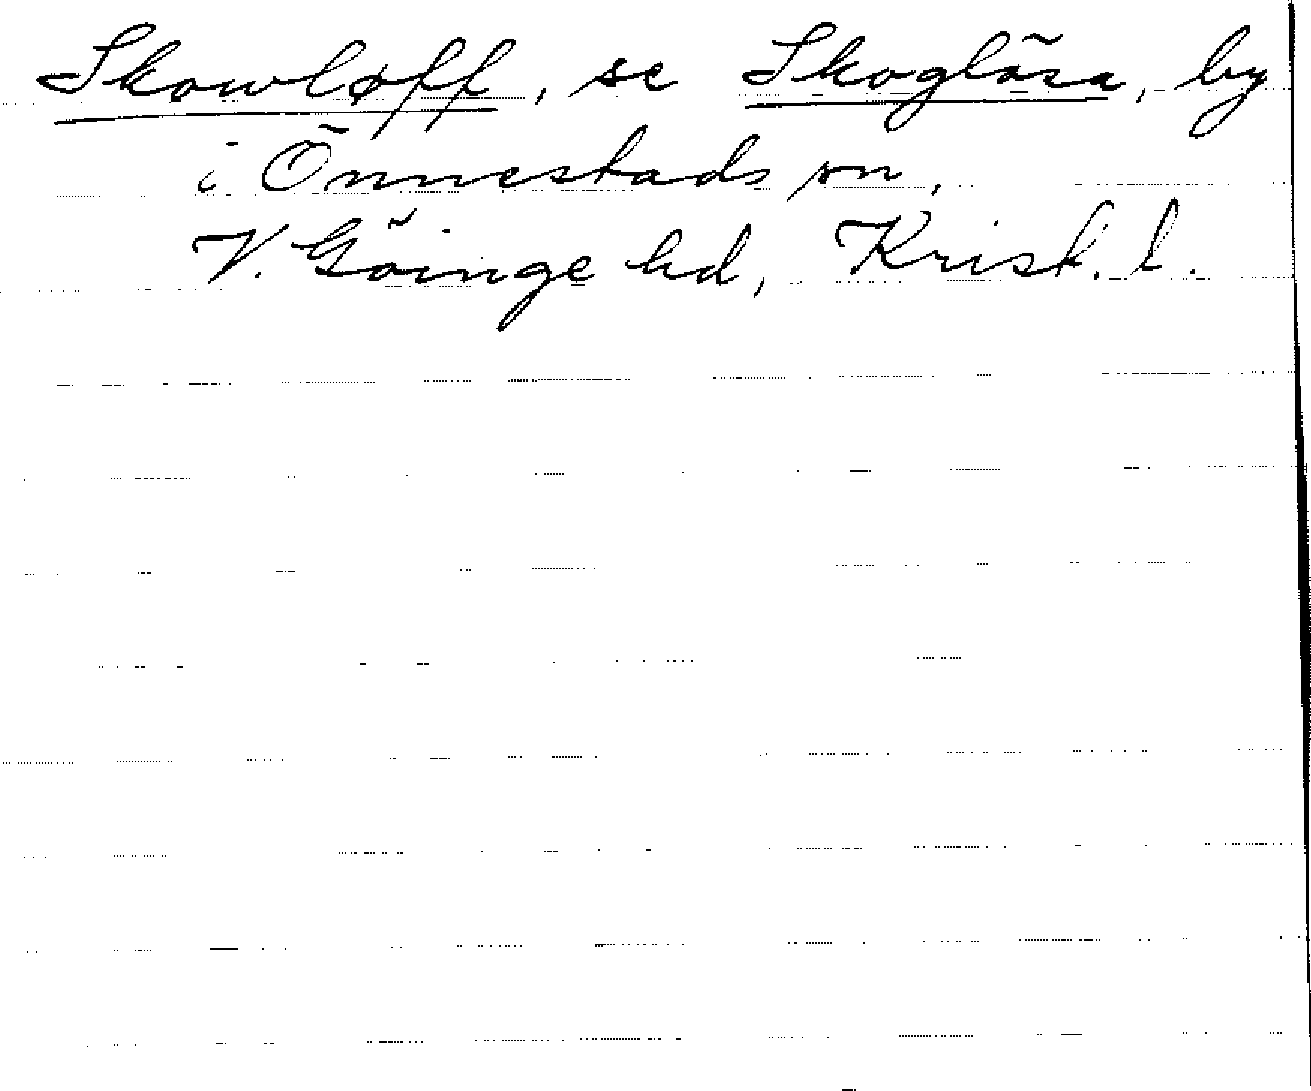 Skowløff, se Skoglösa, by
i Önnestads sn,
V. Göinge hd, Krist. l.